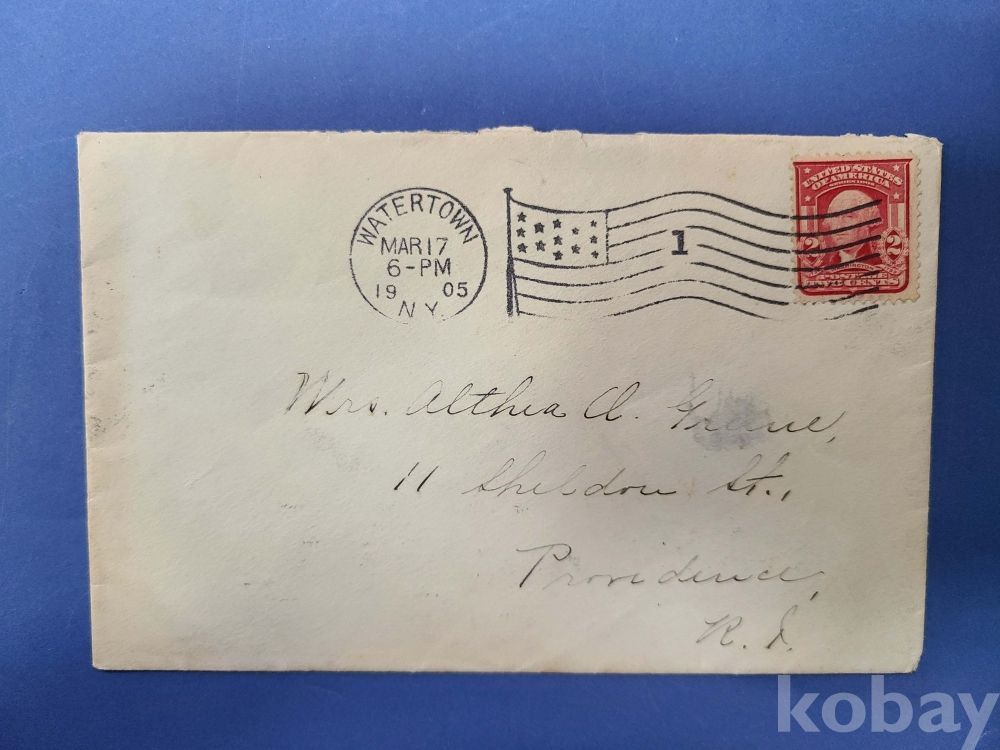 WATERTOWN
MAR 17
6-PM
19 05
N.Y.
1
UNITED STATES
OF AMERICA
2 2
POSTAGE
TWO CENTS
Mrs. Althea A.
11 Sheldon St.,
Providence,
R. I.
kobay